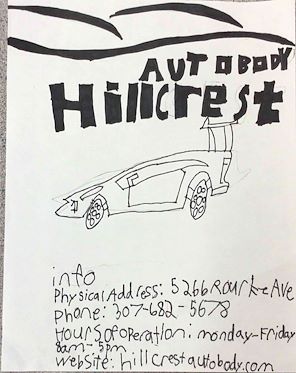 AUTOBODY
Hillcrest
info
Physical Address: 5266 Rourke Ave
Phone: 307-682-5678
Hours of operation: monday-Friday
8am-5pm
website: hillcrestautobody.com